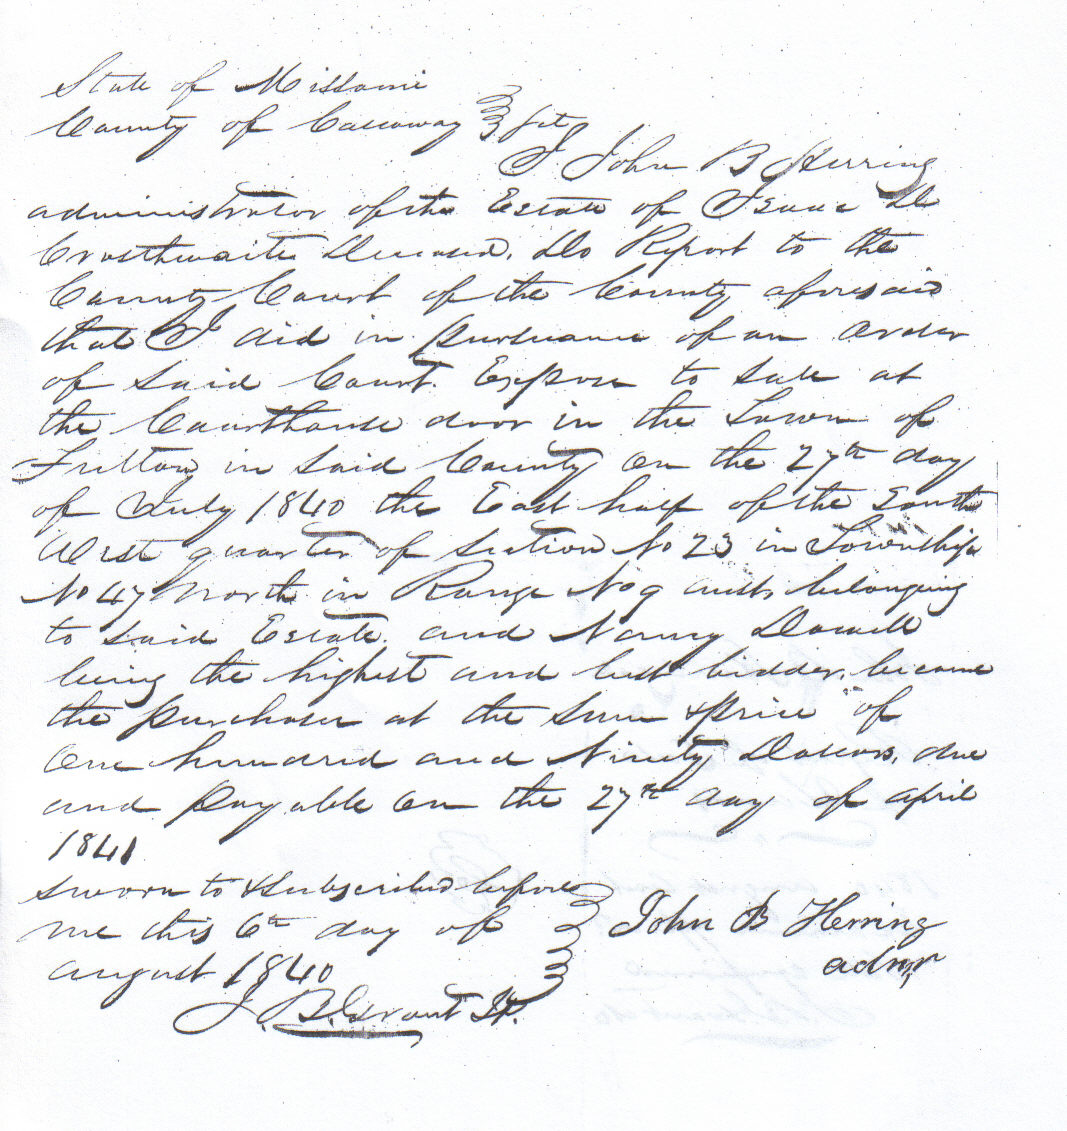 State of Missouri
County of Callaway } Sct
I John B Herring
administrator of the Estate of Isaac D
Crosthwaite Deceased. Do Report to the
County Court of the County aforesaid
that I did in pursuance of an order
of said Court. Expose to sale at
the Courthouse door in the Town of
Fulton in said County on the 27th day
of July 1840 the East half of the South
West quarter of section No 23 in Township
No 47 North in Range No 9 west, belonging
to said Estate. and Nancy Dowell
being the highest and last bidder, became
the purchaser at the sum & price of
One hundred and Ninety Dollars, due
and payable on the 27th day of april
1841
sworn to & subscribed before
me this 6th day of } John B Herring
august 1840 admr
J. B. Grant